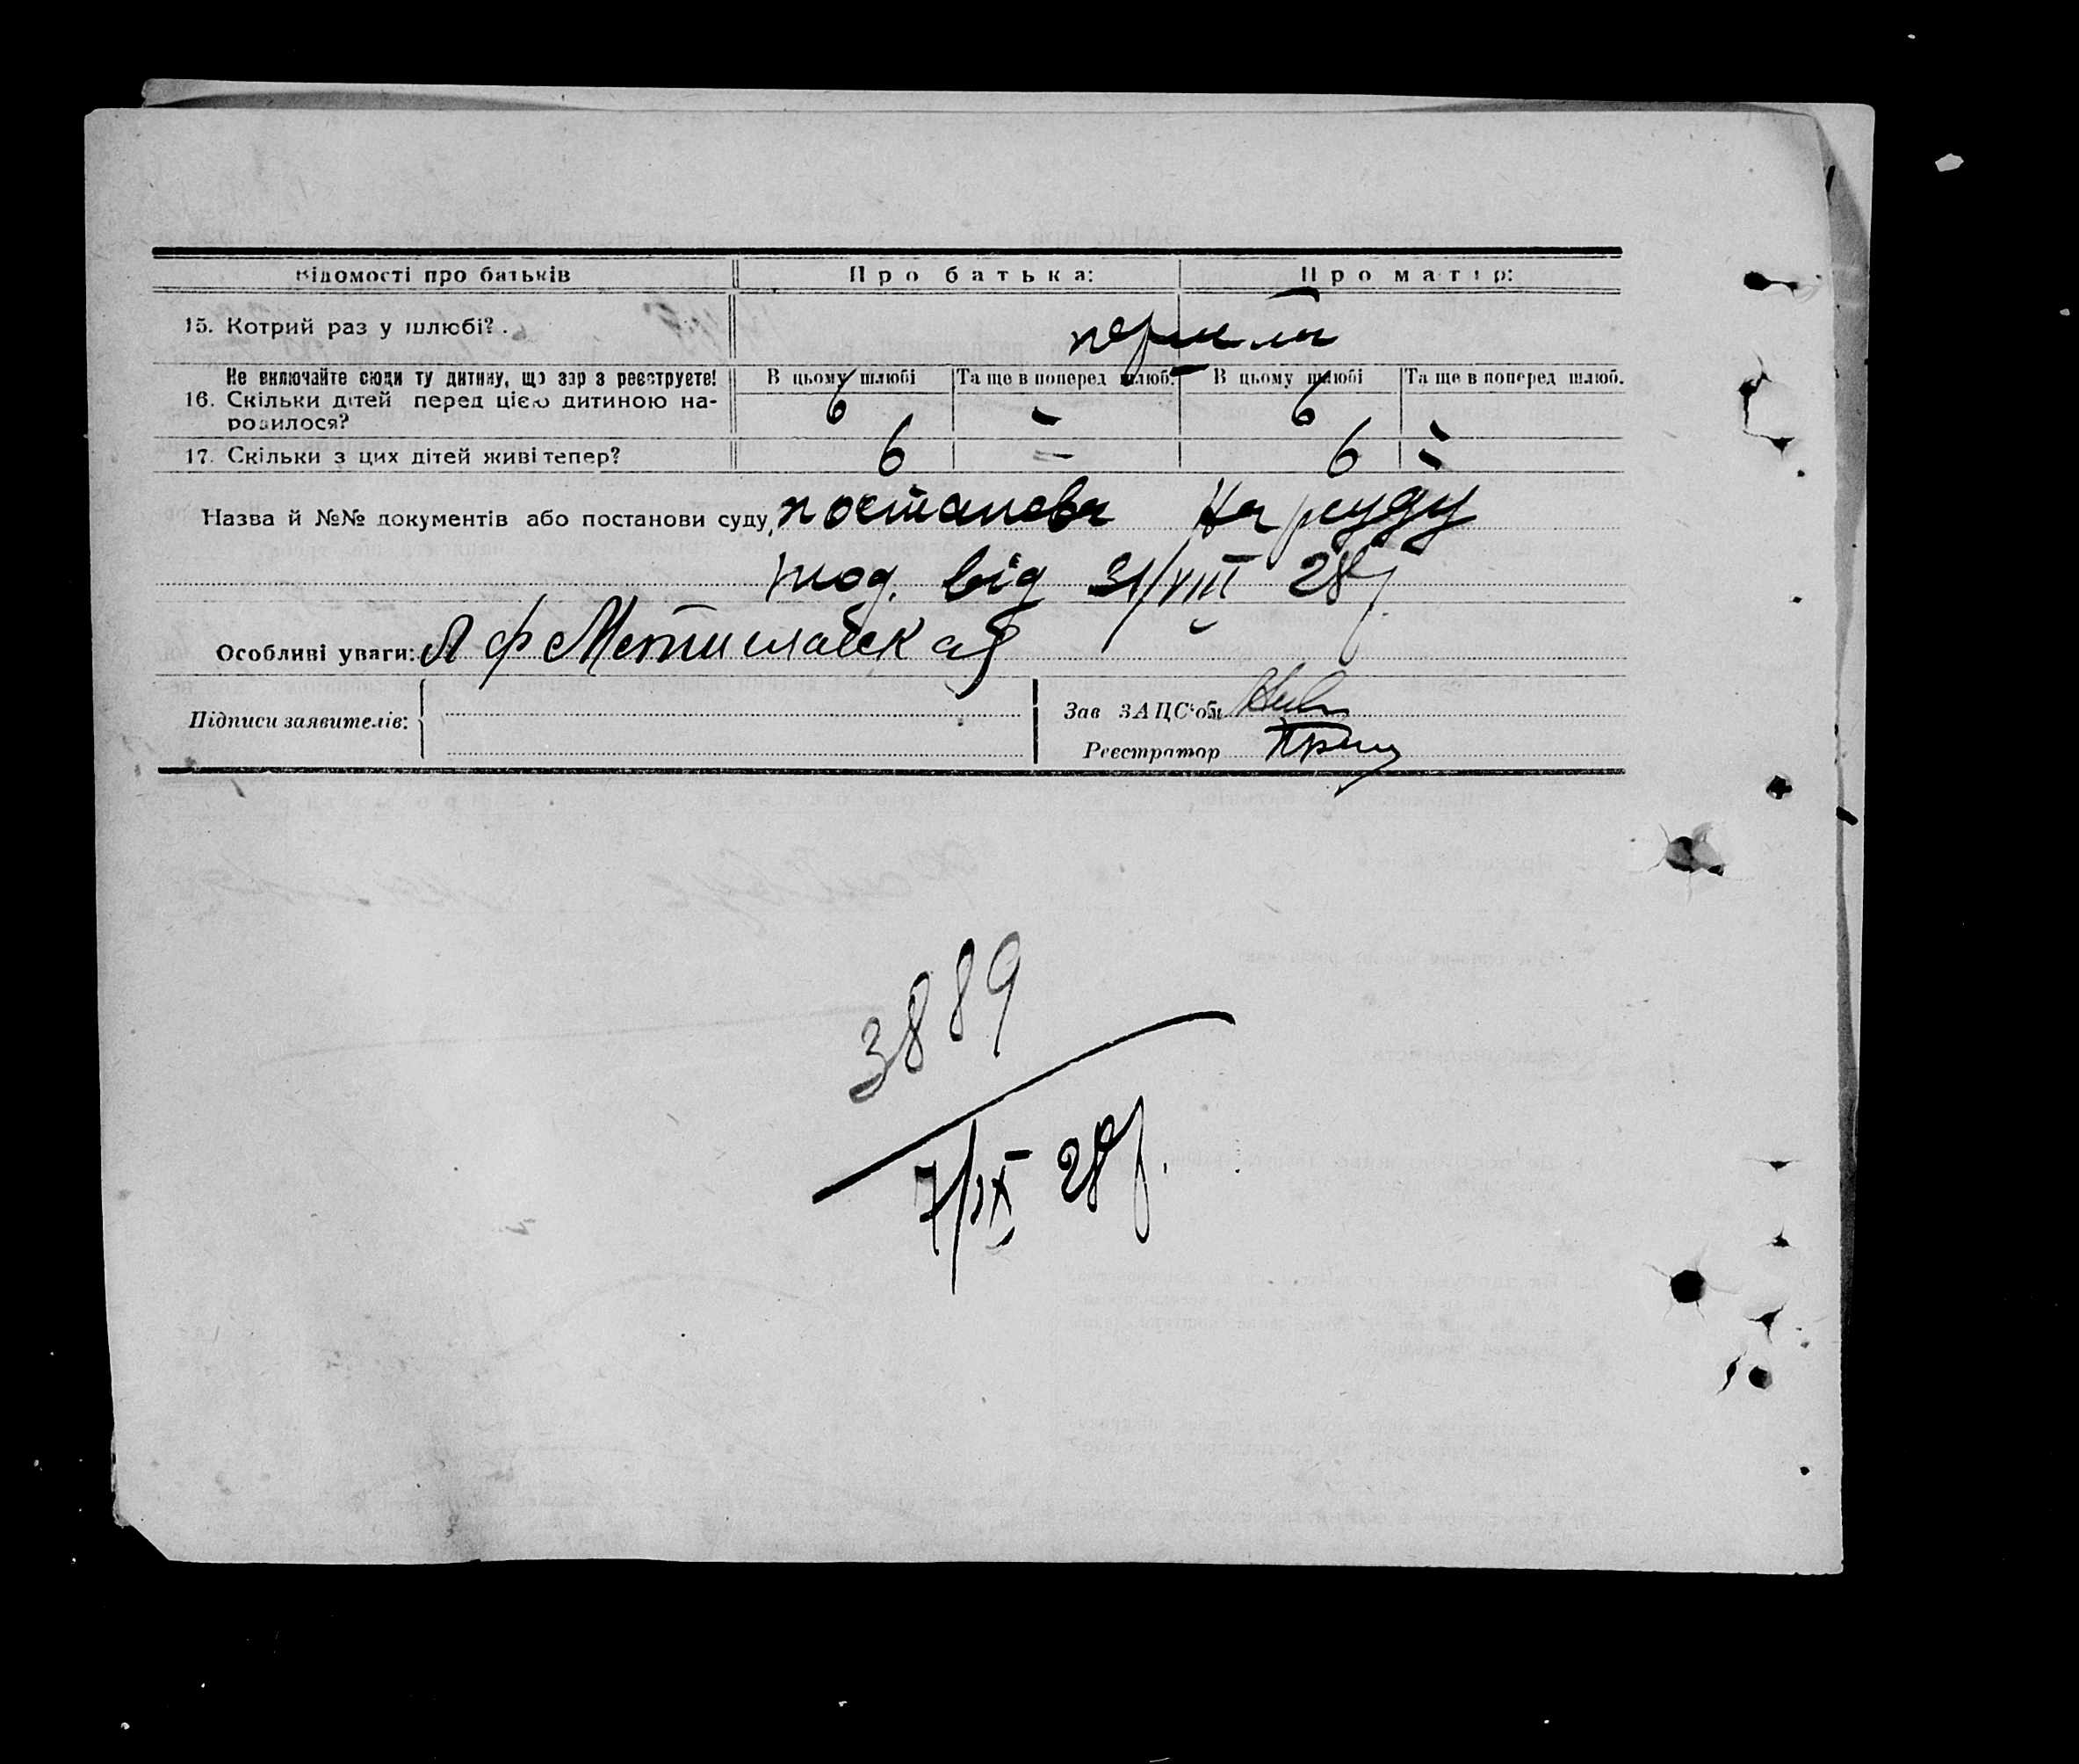 Відомості про батьків Про батька: Про матір:
15. Котрий раз у шлюбі?
Не включайте сюди ту дитину, що зар з реєструєте! В цьому шлюбі Та ще в поперед шлюб. В цьому шлюбі Та ще в поперед шлюб.
16. Скільки дітей перед цією дитиною на-
родилося? 6 - 6 -
17. Скільки з цих дітей живі тепер? 6 - 6 -
Назва й №№ документів або постанови суду, постанова Нарсуду
від 31/VIII 28р
Особливі уваги: Я Ф Мстиславская
Підписи заявителів:
Зав ЗАЦС'ом
Реєстратор
3889
7/IX 28р.